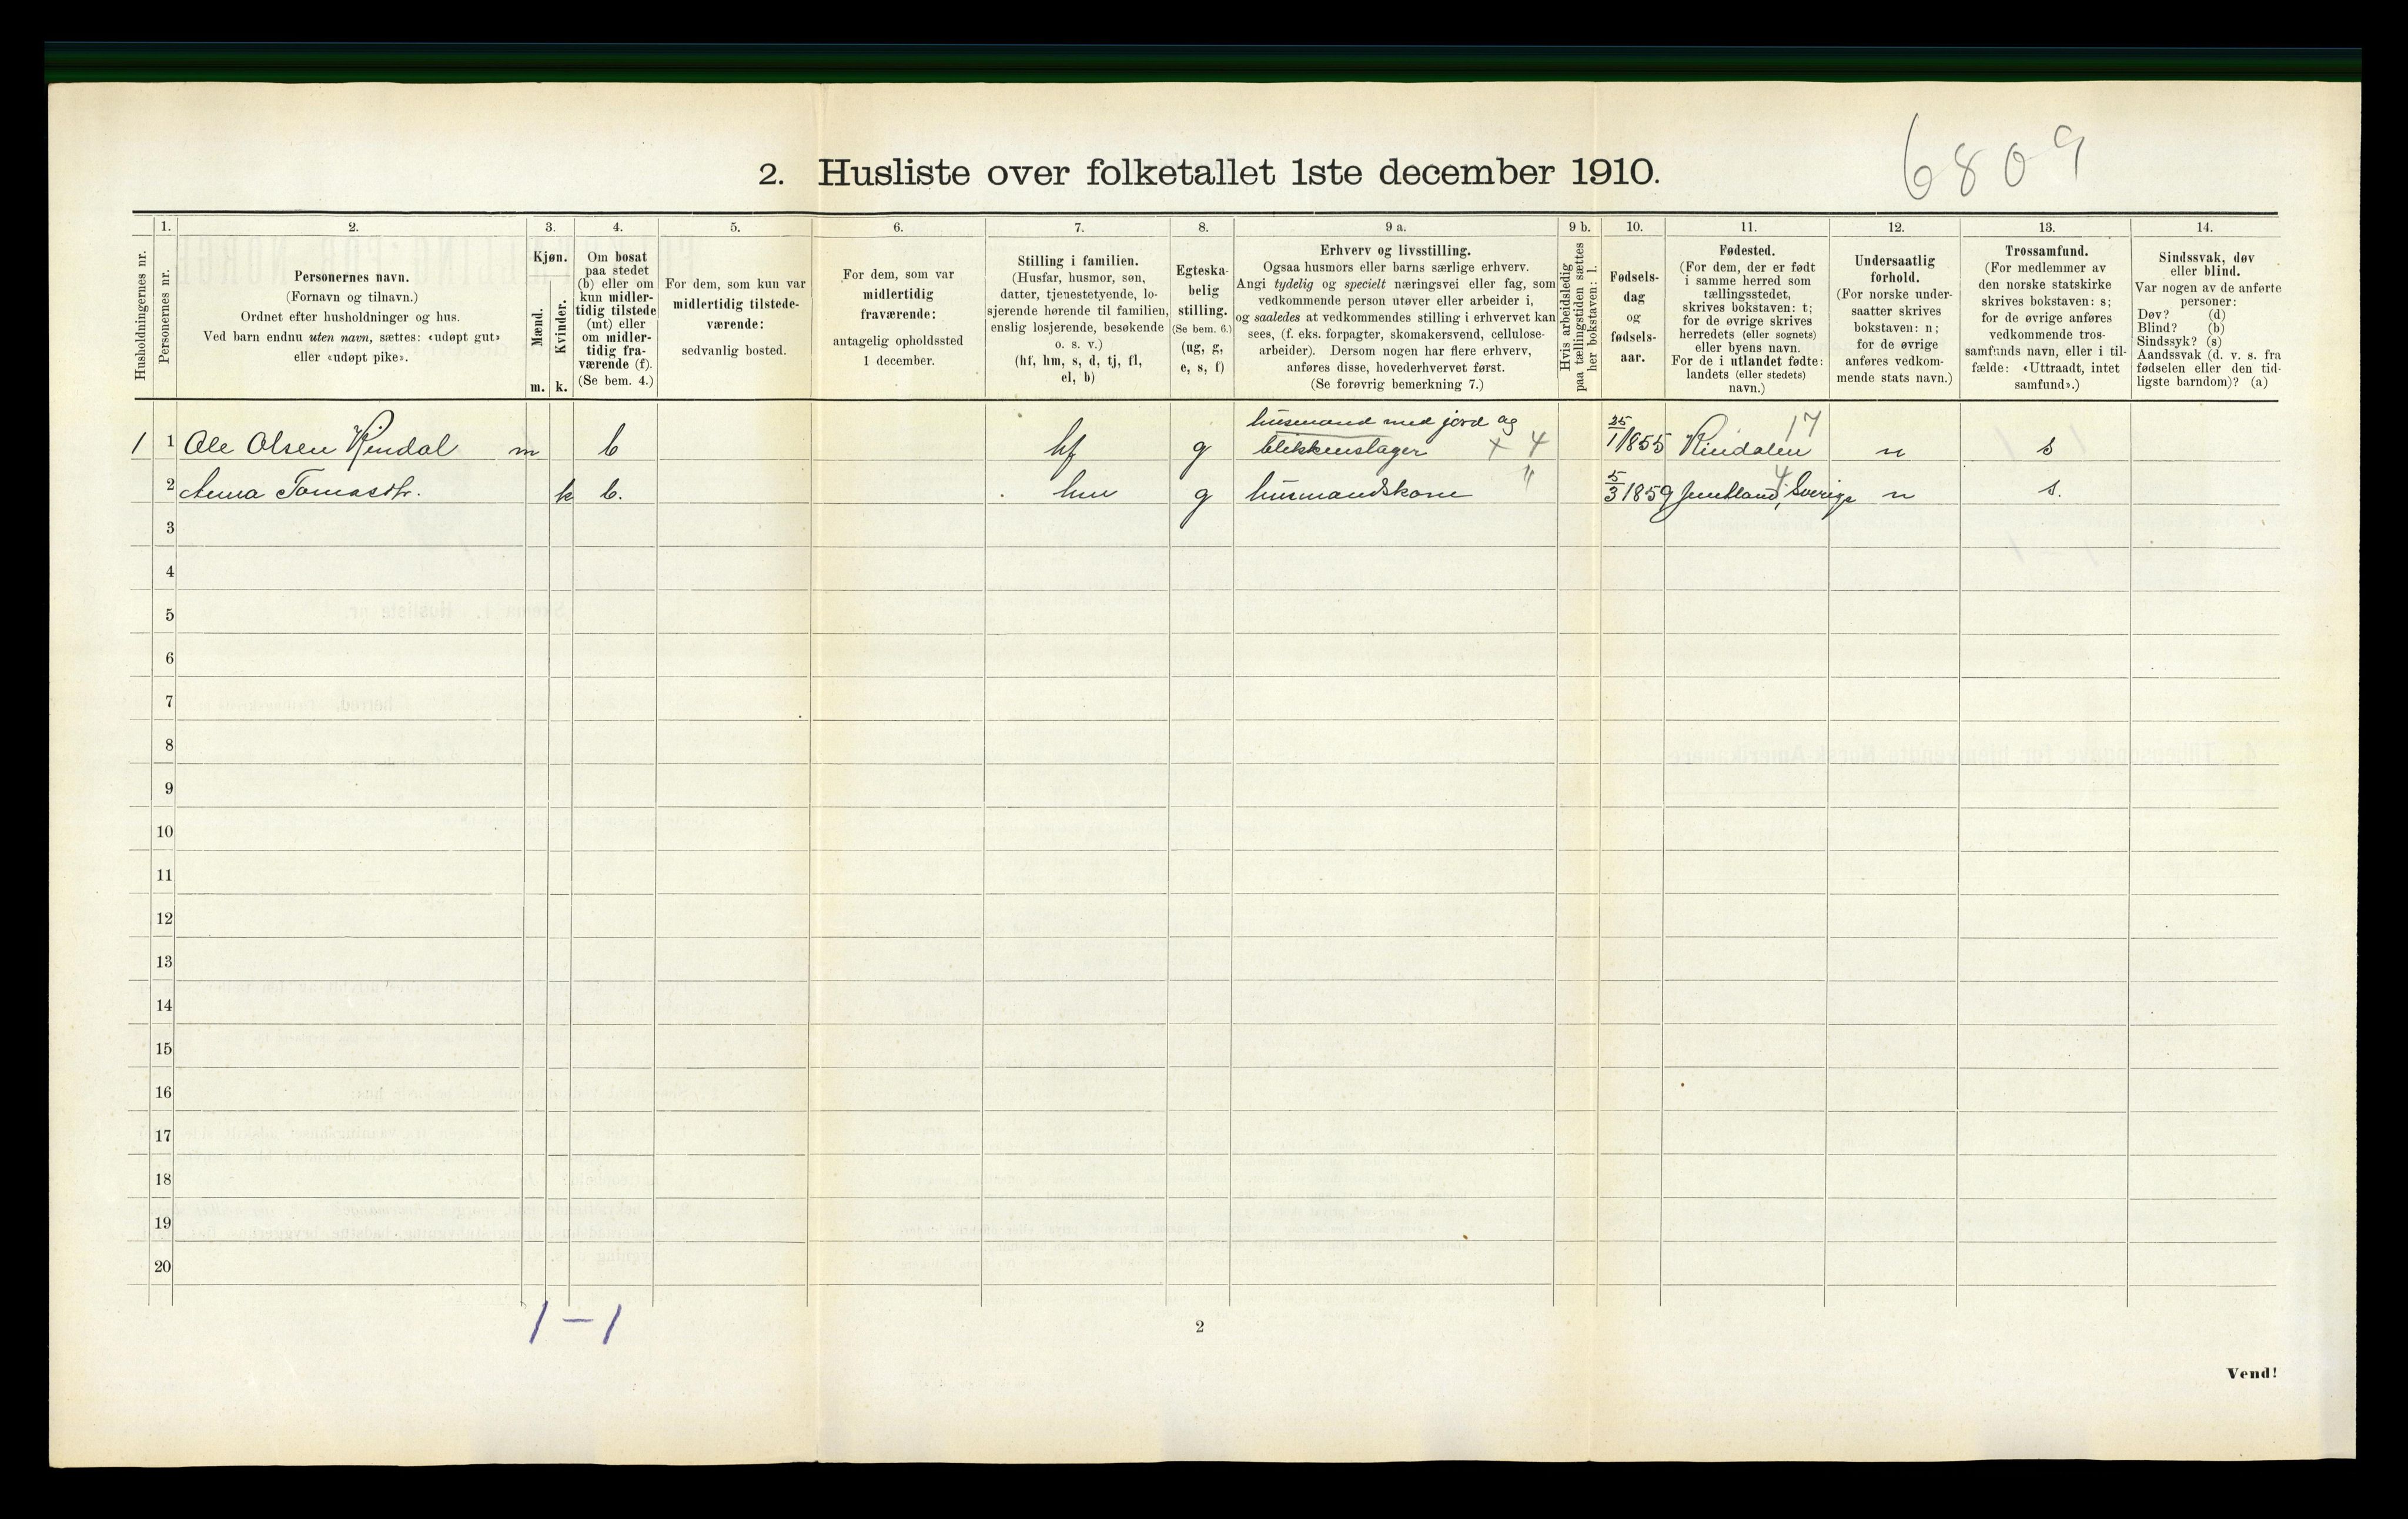 6809
2. Husliste over folketallet 1ste december 1910.
Husholdningernes nr.
1.
Personernes nr.
2.
Personernes navn.
(Fornavn og tilnavn.)
Ordnet efter husholdninger og hus.
Ved barn endnu uten navn, sættes: «udøpt gut»
eller «udøpt pike».
3.
Kjøn.
Mænd.
m.
Kvinder.
k.
4.
Om bosat
paa stedet
(b) eller om
kun midler-
tidig tilstede
(mt) eller
om midler-
tidig fra-
værende (f).
(Se bem. 4.)
5.
For dem, som kun var
midlertidig tilstede-
værende:
sedvanlig bosted.
6.
For dem, som var
midlertidig
fraværende:
antagelig opholdssted
1 december.
7.
Stilling i familien.
(Husfar, husmor, søn,
datter, tjenestetyende, lo-
sjerende hørende til familien,
enslig losjerende, besøkende
o. s. v.)
(hf, hm, s, d, tj, fl,
el, b)
8.
Egteska-
belig
stilling.
(Se bem. 6.)
(ug, g,
e, s, f)
9 a.
Erhverv og livsstilling.
Ogsaa husmors eller barns særlige erhverv.
Angi tydelig og specielt næringsvei eller fag, som
vedkommende person utøver eller arbeider i,
og saaledes at vedkommendes stilling i erhvervet kan
sees, (f. eks. forpagter, skomakersvend, cellulose-
arbeider). Dersom nogen har flere erhverv,
anføres disse, hovederhvervet først.
(Se forøvrig bemerkning 7.)
9 b.
Hvis arbeidsledig
paa tællingstiden sættes
her bokstaven: l.
10.
Fødsels-
dag
og
fødsels-
aar.
11.
Fødested.
(For dem, der er født
i samme herred som
tællingsstedet,
skrives bokstaven: t;
for de øvrige skrives
herredets (eller sognets)
eller byens navn.
For de i utlandet fødte:
landets (eller stedets)
navn.)
12.
Undersaatlig
forhold.
(For norske under-
saatter skrives
bokstaven: n;
for de øvrige
anføres vedkom-
mende stats navn.)
13.
Trossamfund.
(For medlemmer av
den norske statskirke
skrives bokstaven: s;
for de øvrige anføres
vedkommende tros-
samfunds navn, eller i til-
fælde: «Uttraadt, intet
samfund».)
14.
Sindssvak, døv
eller blind.
Var nogen av de anførte
personer:
Døv? (d)
Blind? (b)
Sindssyk? (s)
Aandssvak (d. v. s. fra
fødselen eller den tid-
ligste barndom)? (a)
husmand med jord og 17
1 1 Ole Olsen Rindal m b hf g blikkenslager x 4 25/1 1855 Rindalen n s
2 Anna Tomasdtr. k b. hm g husmandskone " 5/3 1859 Jemtland, Sverige 4 n s.
3
4
5
6
7
8
9
10
11
12
13
14
15
16
17
18
19
20
1 – 1
2
Vend!